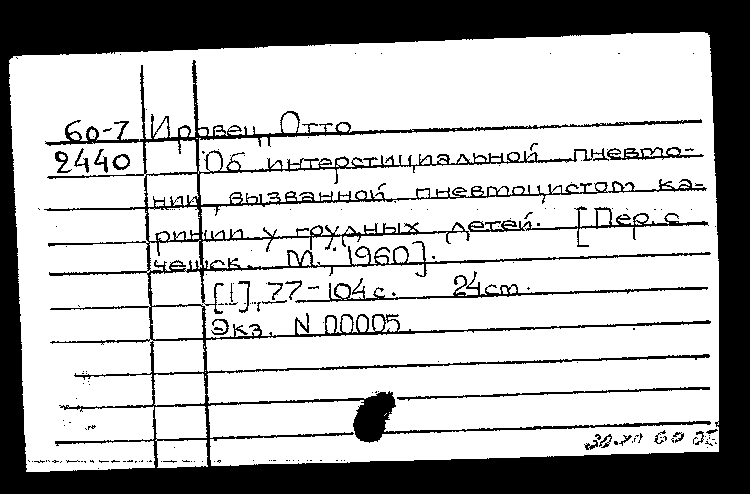 60-7 Ировец, Отто
2440 Об интерстициальной пневмо-
нии, вызванной пневмоцистом ка-
ринии у грудных детей. [Пер. с
чешск. М., 1960].
[1], 77-104 с. 24 см.
Экз. N 00005.
60